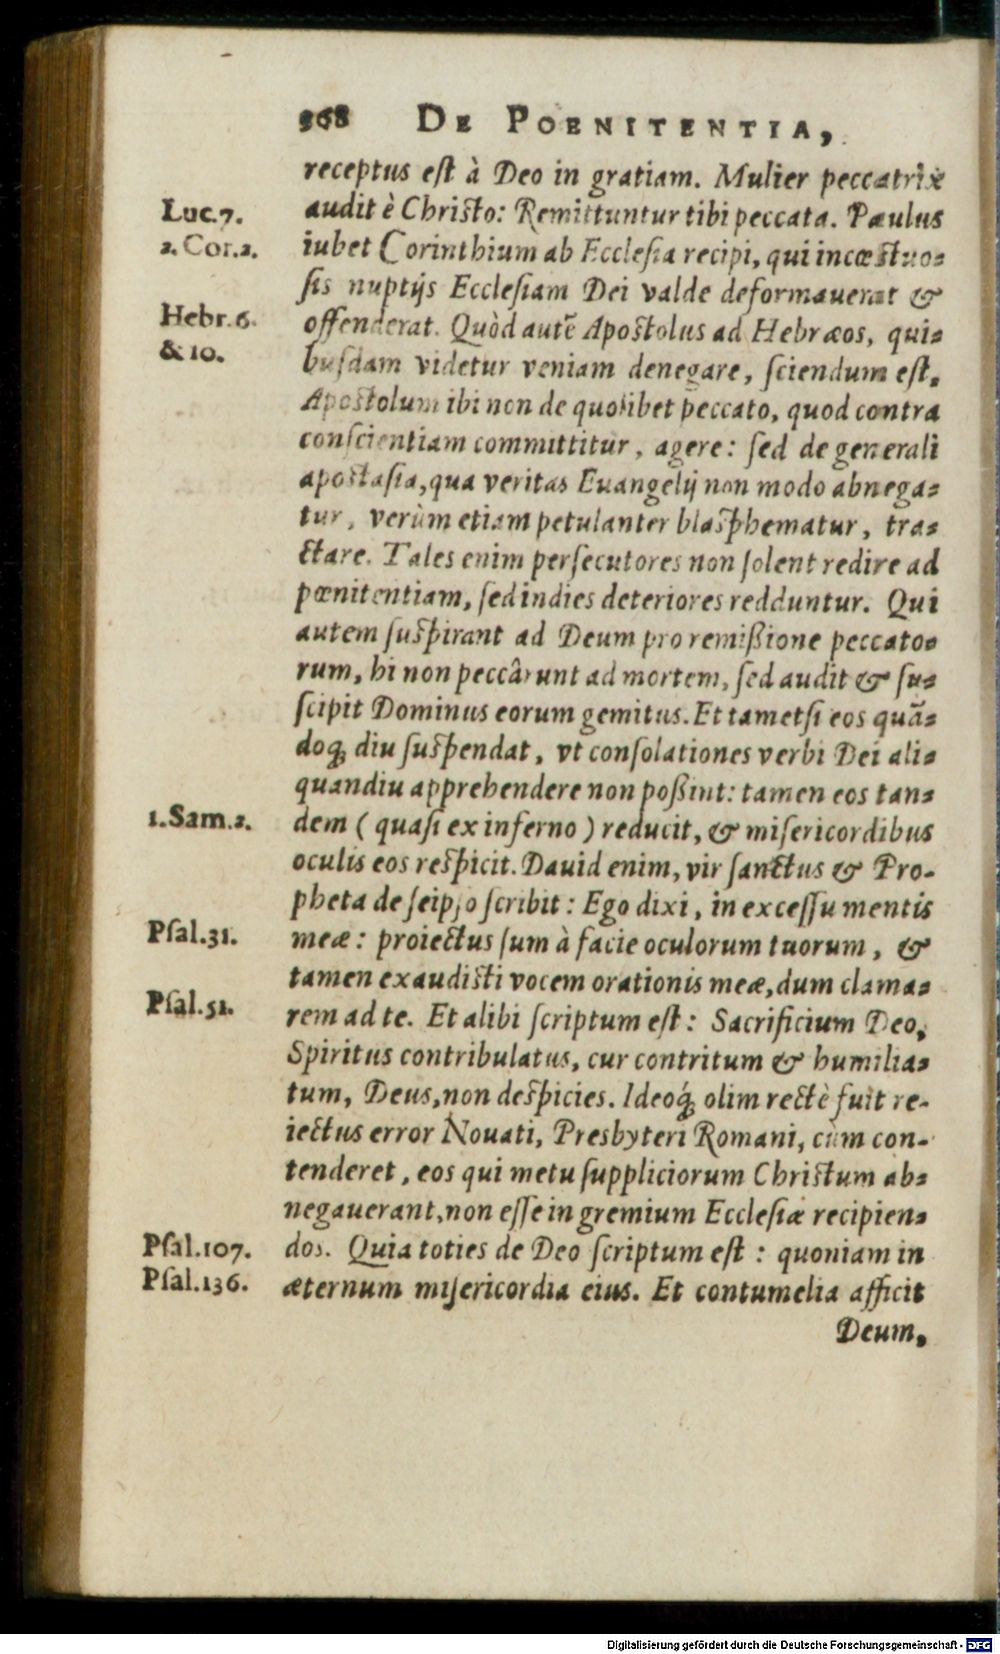 368 DE POENITENTIA,
receptus eſt à Deo in gratiam. Mulier peccatrix
Luc.7.
audit è Chriſto: Remittuntur tibi peccata. Paulus
2.Cor.2.
iubet Corinthium ab Eccleſia recipi, qui incœſtuo-
ſis nuptijs Eccleſiam Dei valde deformauerat &
Hebr.6.
offenderat. Quòd autē Apoſtolus ad Hebræos, qui-
& 10.
buſdam videtur veniam denegare, ſciendum eſt,
Apoſtolum ibi non de quolibet peccato, quod contra
conſcientiam committitur, agere: ſed de generali
apoſtaſia, qua veritas Euangelij non modo abnega-
tur, verùm etiam petulanter blaſphematur, tra-
ctare. Tales enim perſecutores non ſolent redire ad
pœnitentiam, ſed indies deteriores redduntur. Qui
autem ſuſpirant ad Deum pro remißione peccato-
rum, hi non peccârunt ad mortem, ſed audit & ſu-
ſcipit Dominus eorum gemitus. Et tametſi eos quā-
doq; diu ſuſpendat, vt conſolationes verbi Dei ali-
quandiu apprehendere non poßint: tamen eos tan-
1.Sam.2.
dem (quaſi ex inferno) reducit, & miſericordibus
oculis eos reſpicit. Dauid enim, vir ſanctus & Pro-
pheta de ſeipſo ſcribit: Ego dixi, in exceſſu mentis
Pſal.31.
meæ: proiectus ſum à facie oculorum tuorum, &
tamen exaudiſti vocem orationis meæ, dum clama-
Pſal.51.
rem ad te. Et alibi ſcriptum eſt: Sacrificium Deo,
Spiritus contribulatus, cur contritum & humilia-
tum, Deus, non deſpicies. Ideoq́; olim rectè fuit re-
iectus error Nouati, Presbyteri Romani, cùm con-
tenderet, eos qui metu ſuppliciorum Chriſtum ab-
negauerant, non eſſe in gremium Eccleſiæ recipien-
Pſal.107.
dos. Quia toties de Deo ſcriptum eſt: quoniam in
Pſal.136.
æternum miſericordia eius. Et contumelia afficit
Deum,
Digitalisierung gefördert durch die Deutsche Forschungsgemeinschaft - DFG